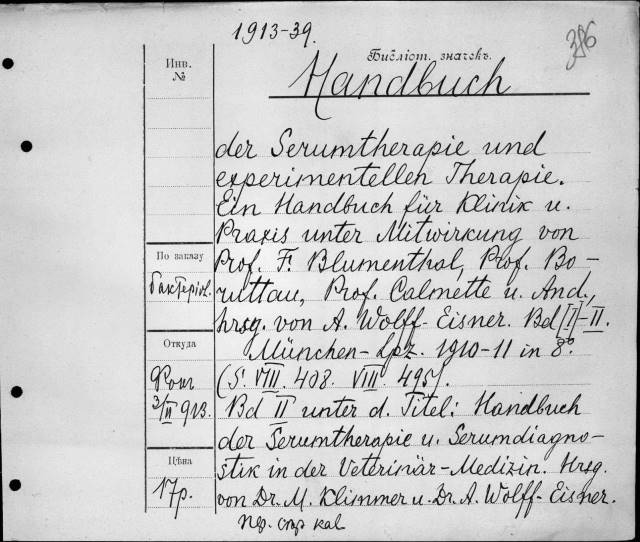 1913-39.
386
Инв.
№
Библіот. значекъ.
Handbuch
der Serumtherapie und
experimentellen Therapie.
Ein Handbuch für Klinik u.
Praxis unter Mitwirkung von
Prof. F. Blumenthal, Prof. Bo-
ruttau, Prof. Calmette u. And.,
hrsg. von A. Wolff-Eisner. Bd [I]-II.
München-Lpz. 1910-11 in 8°.
(S. VIII. 408. VIII. 495).
Bd II unter d. Titel: Handbuch
der Serumtherapie u. Serumdiagno-
stik in der Veterinär-Medizin. Hrsg.
von Dr. M. Klimmer u. Dr. A. Wolff-Eisner.
По заказу
бактеріол.
Откуда
3/II 913.
Цѣна
17р.